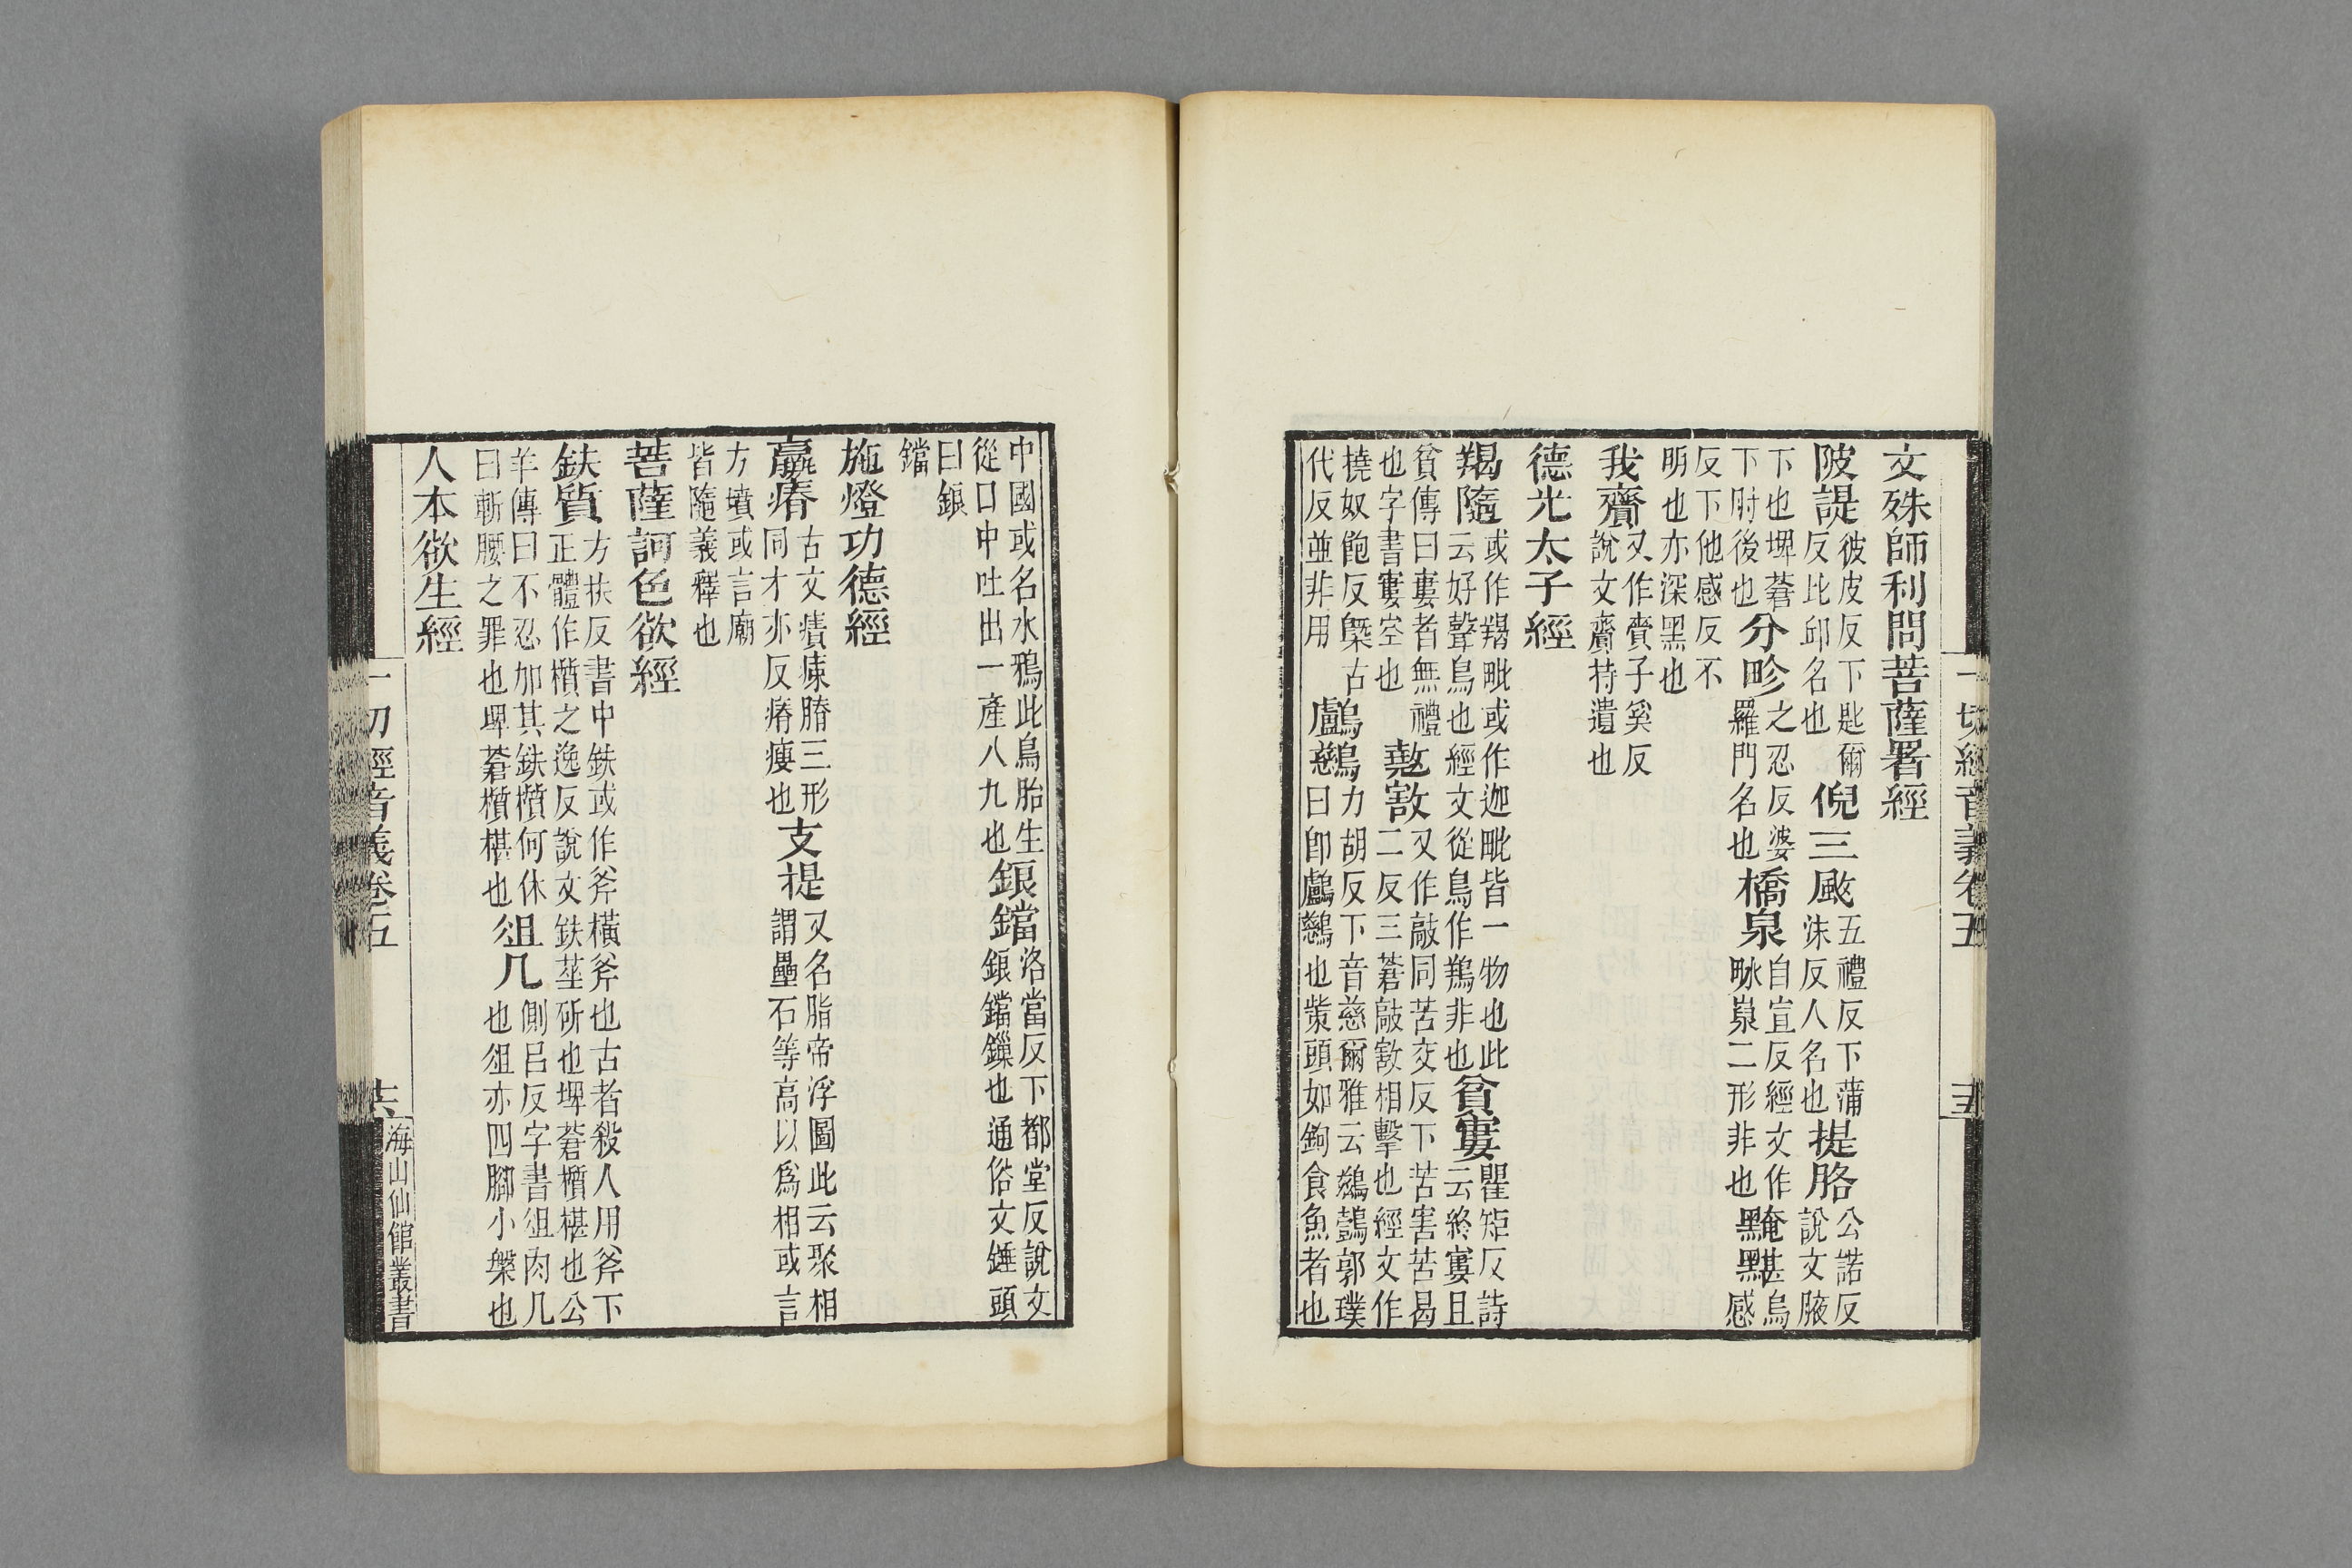 一切經音義卷五 十五
文殊師利問菩薩署經
陂諟彼皮反下匙爾反比邱名也倪三颰五禮反下蒲沬反人名也提胳公諾反說文腋
下也埤蒼下肘後也分畛之忍反婆羅門名也橋泉自宣反經文作二形非也黤黮烏感
反下他感反不明也亦深黑也
我齎又作賷子奚反說文齎持遺也
德光太子經
羯隨或作羯毗或作迦毗皆一物也此云好聲鳥也經文從鳥作鶷非也貧寠瞿矩反詩云終寠且
貧傳曰寠者無禮也字書寠空也㪣㪡又作敲同苦交反下苦害苦曷二反三蒼敲㪡相擊也經文作
撓奴飽反槩古代反並非用鸕鷀力胡反下音慈爾雅云鶿鷧郭璞曰卽鸕鷀也觜頭如鉤食魚者也
中國或名水鴉此鳥胎生從口中吐出一產八九也鋃鐺洛當反下都堂反說文鋃鐺鏁也通俗文錘頭
曰鋃鐺
施燈功德經
羸瘠古文膌三形同才亦反瘠瘦也支提又名脂帝浮圖此云聚相謂壘石等高以爲相或言
方墳或言廟皆隨義釋也
菩薩訶色欲經
鈇質方扶反書中鈇或作斧橫斧也古者殺人用斧下正體作櫍之逸反說文鈇莝斫也埤蒼櫍椹也公
羊傳曰不忍加其鈇櫍何休曰斬腰之罪也埤蒼櫍椹也俎几側呂反字書俎肉几也俎亦四腳小槃也
人本欲生經
一切經音義卷五 十六 海山仙館叢書